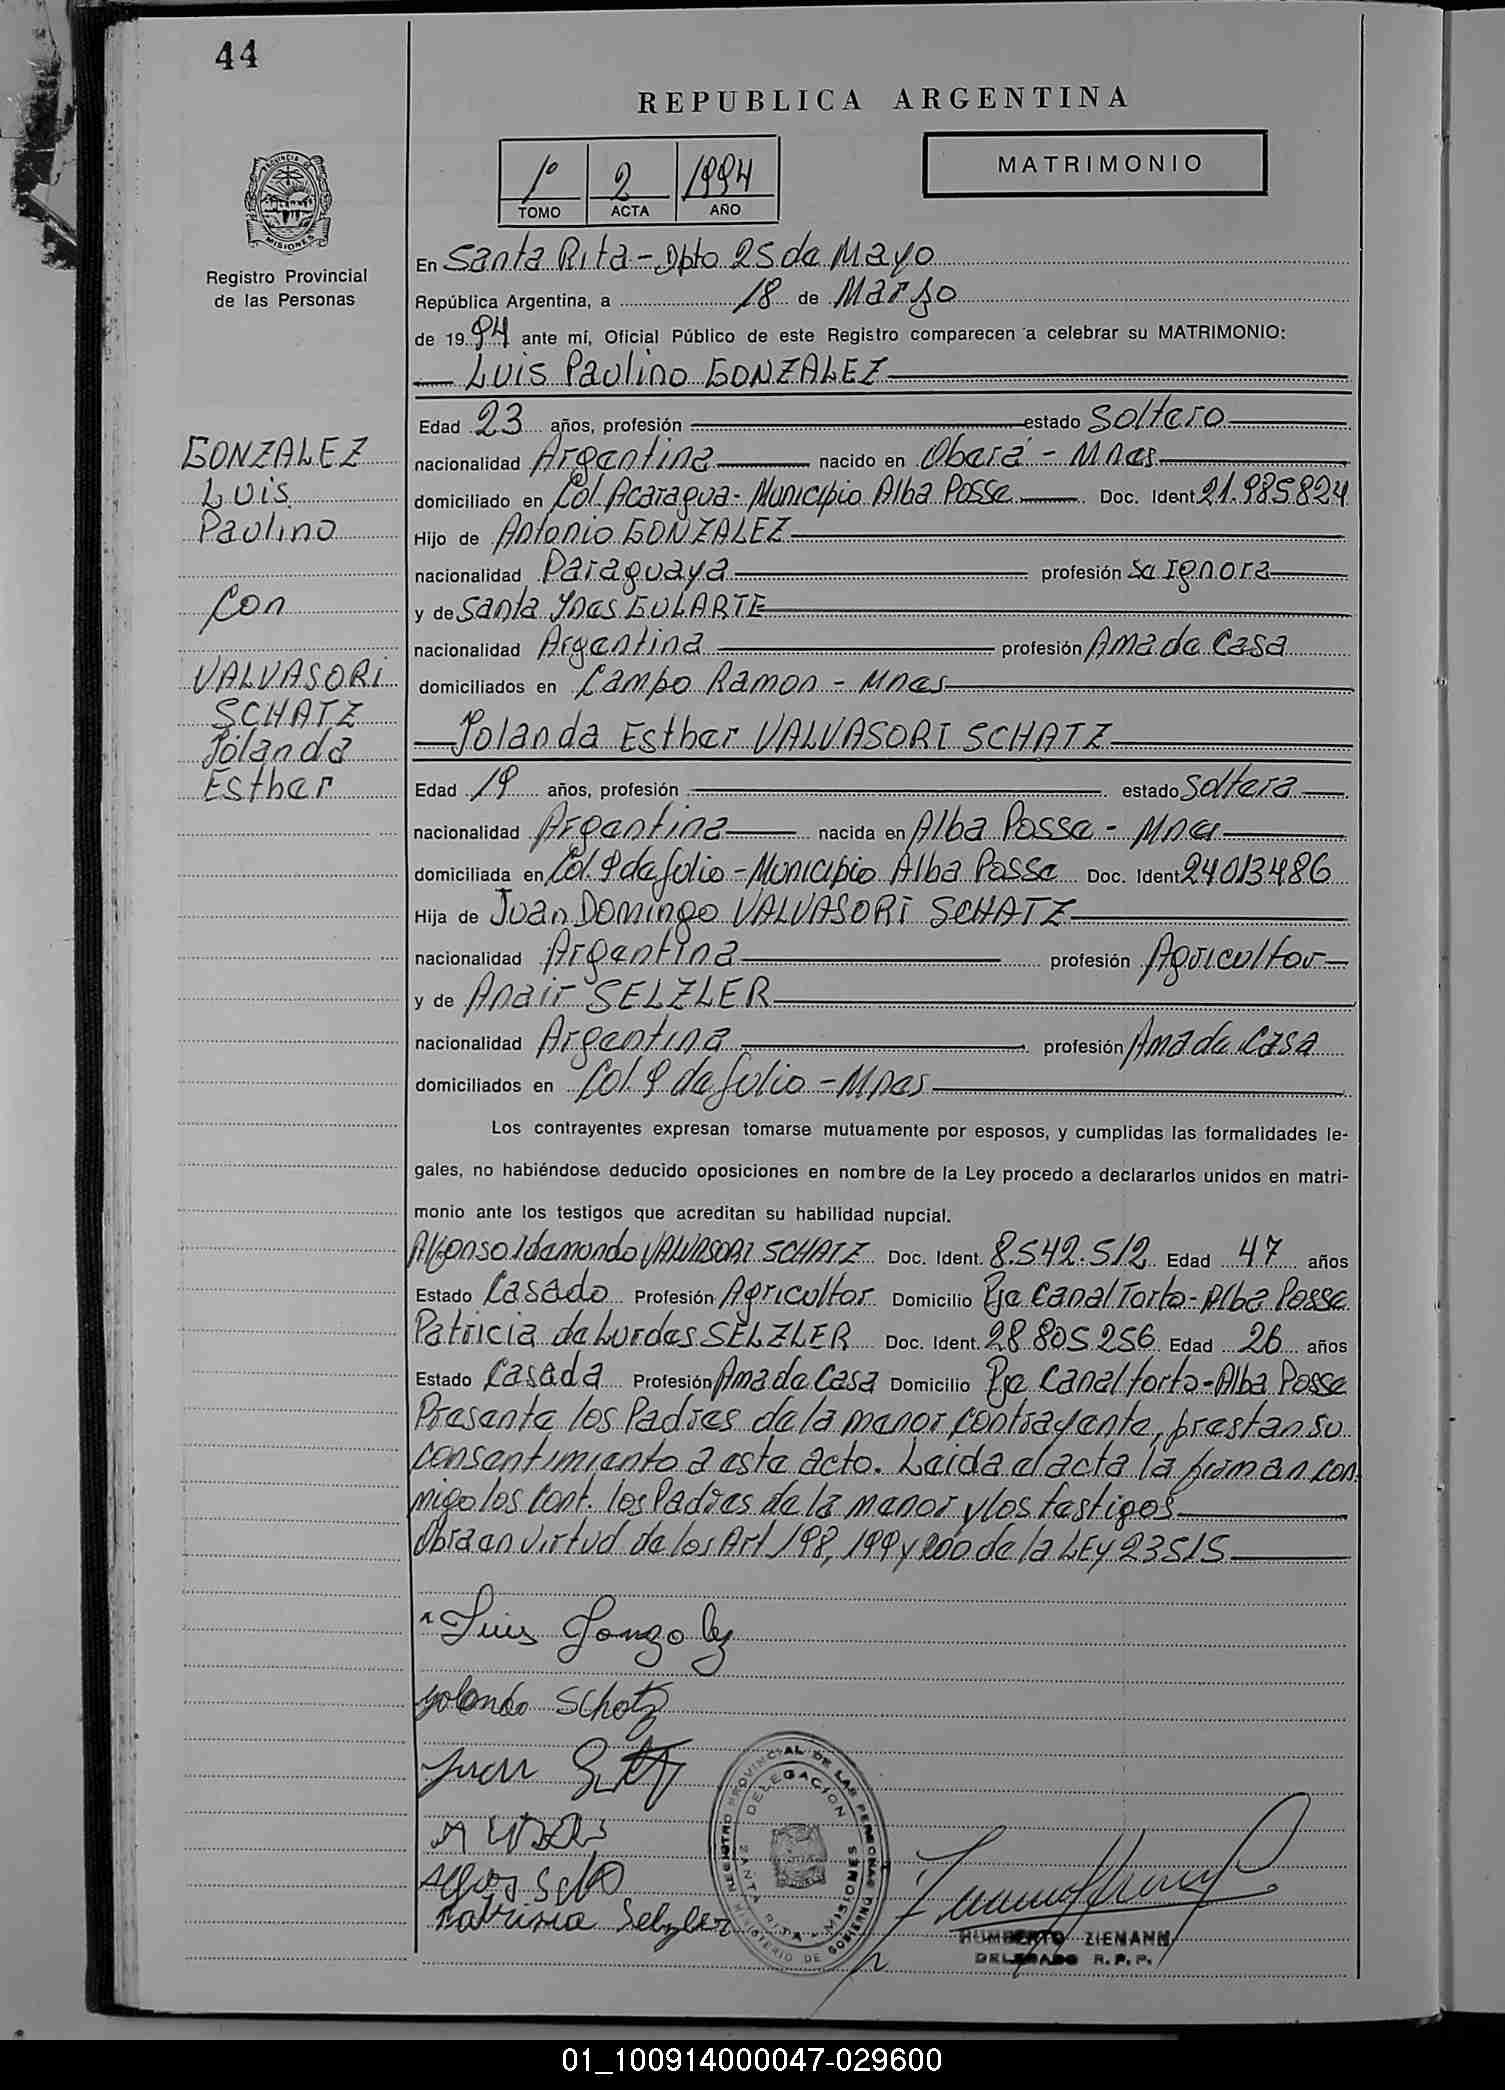 44
REPUBLICA ARGENTINA
MATRIMONIO
1º 2 1994
TOMO ACTA AÑO
PROVINCIA DE
MISIONES
Registro Provincial
de las Personas
En Santa Rita - Dpto 25 de Mayo
República Argentina, a 18 de Marzo
de 1994 ante mí, Oficial Público de este Registro comparecen a celebrar su MATRIMONIO:
Luis Paulino GONZALEZ
Edad 23 años, profesión estado Soltero
nacionalidad Argentina nacido en Oberá - Mnes
domiciliado en Col. Acaragua - Municipio Alba Posse Doc. Ident 21.985824
Hijo de Antonio GONZALEZ
nacionalidad Paraguaya profesión se Ignora
y de Santa Ynes GULARTE
nacionalidad Argentina profesión Ama de Casa
domiciliados en Campo Ramon - Mnes
Yolanda Esther VALVASORI SCHATZ
Edad 19 años, profesión estado Soltera
nacionalidad Argentina nacida en Alba Posse - Mnes
domiciliada en Col. 9 de Julio - Municipio Alba Posse Doc. Ident 24013486
Hija de Juan Domingo VALVASORI SCHATZ
nacionalidad Argentina profesión Agricultor
y de Anair SELZLER
nacionalidad Argentina profesión Ama de Casa
domiciliados en Col. 9 de Julio - Mnes
GONZALEZ
Luis
Paulino
Con
VALVASORI
SCHATZ
Yolanda
Esther
Los contrayentes expresan tomarse mutuamente por esposos, y cumplidas las formalidades le-
gales, no habiéndose deducido oposiciones en nombre de la Ley procedo a declararlos unidos en matri-
monio ante los testigos que acreditan su habilidad nupcial.
Alfonso Idemondo VALVASORI SCHATZ Doc. Ident. 8.542.512 Edad 47 años
Estado Casado Profesión Agricultor Domicilio Pje Canal Torto - Alba Posse
Patricia de Lurdes SELZLER Doc. Ident. 28 805 256 Edad 26 años
Estado Casada Profesión Ama de Casa Domicilio Pje Canal torto - Alba Posse
Presente los Padres de la menor contrayente, prestan su
consentimiento a este acto. Leida el acta la firman con
migo los Cont. los Padres de la menor y los testigos
Obra en virtud de los Art 198, 199 y 200 de la LEY 23515
Luis Gonzalez
Yolanda Schatz
Juan
Patrisia Selzler
REGISTRO PROVINCIAL DE LAS PERSONAS
MINISTERIO DE GOBIERNO
DELEGACION
SANTA RITA - MISIONES
HUMBERTO ZIEMANN
DELEGADO R. P. P.
01_100914000047-029600